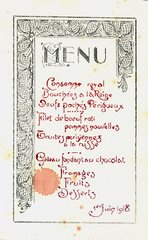 MENU
Consommé royal
Bouchées à la Reine
Oeufs pochés Périgueux
Filet de boeuf roti
pommes nouvelles
Truites
à la russe
Gâteau fondant au chocolat
Fromages
Fruits
Desserts
Juin 1918